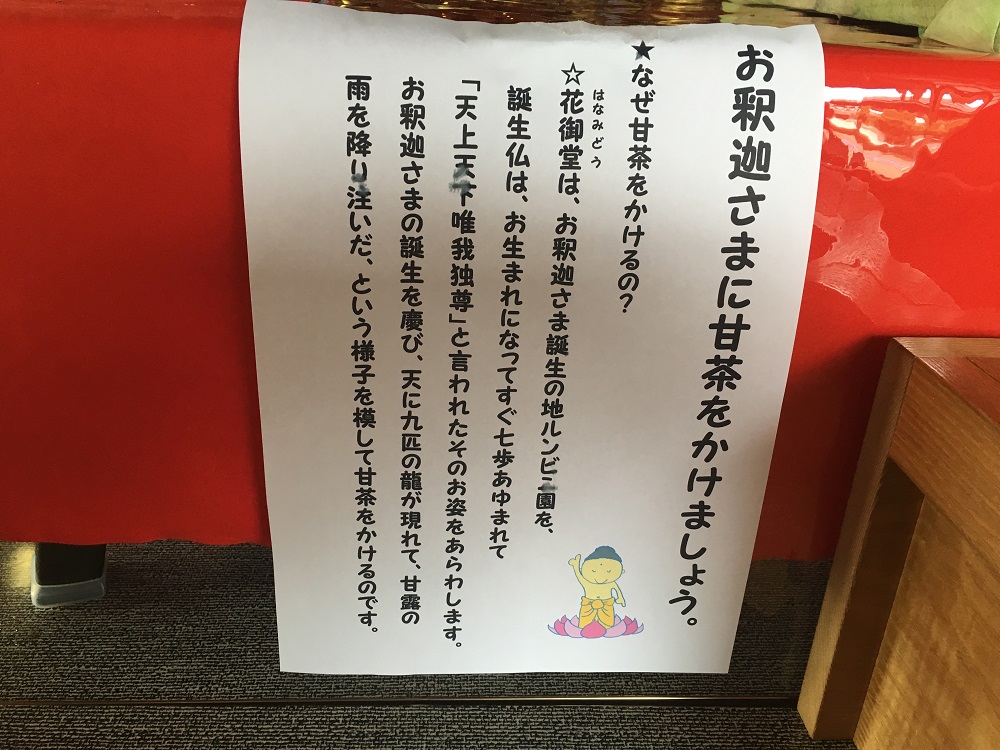 お釈迦さまに甘茶をかけましょう。
★なぜ甘茶をかけるの?
はなみどう
☆花御堂は、お釈迦さま誕生の地ルンビニ園を、
誕生仏は、お生まれになってすぐ七歩あゆまれて
「天上天下唯我独尊」と言われたそのお姿をあらわします。
お釈迦さまの誕生を慶び、天に九匹の龍が現れて、甘露の
雨を降り注いだ、という様子を模して甘茶をかけるのです。